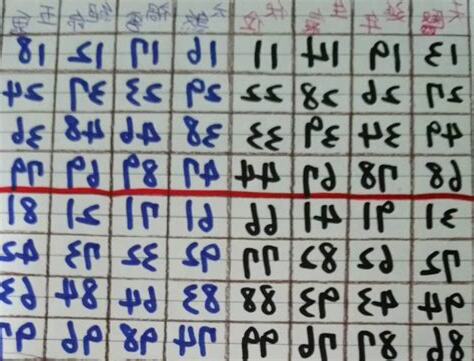 13 19 14 11 16 17 12 18
27 26 28 22 29 23 37 24
49 34 39 33 38 46 48 36
68 78 67 44 47 89 69 79
31 91 41 66 61 71 21 81
72 62 82 77 92 32 73 42
94 43 93 88 83 64 84 63
86 87 76 99 74 98 96 97